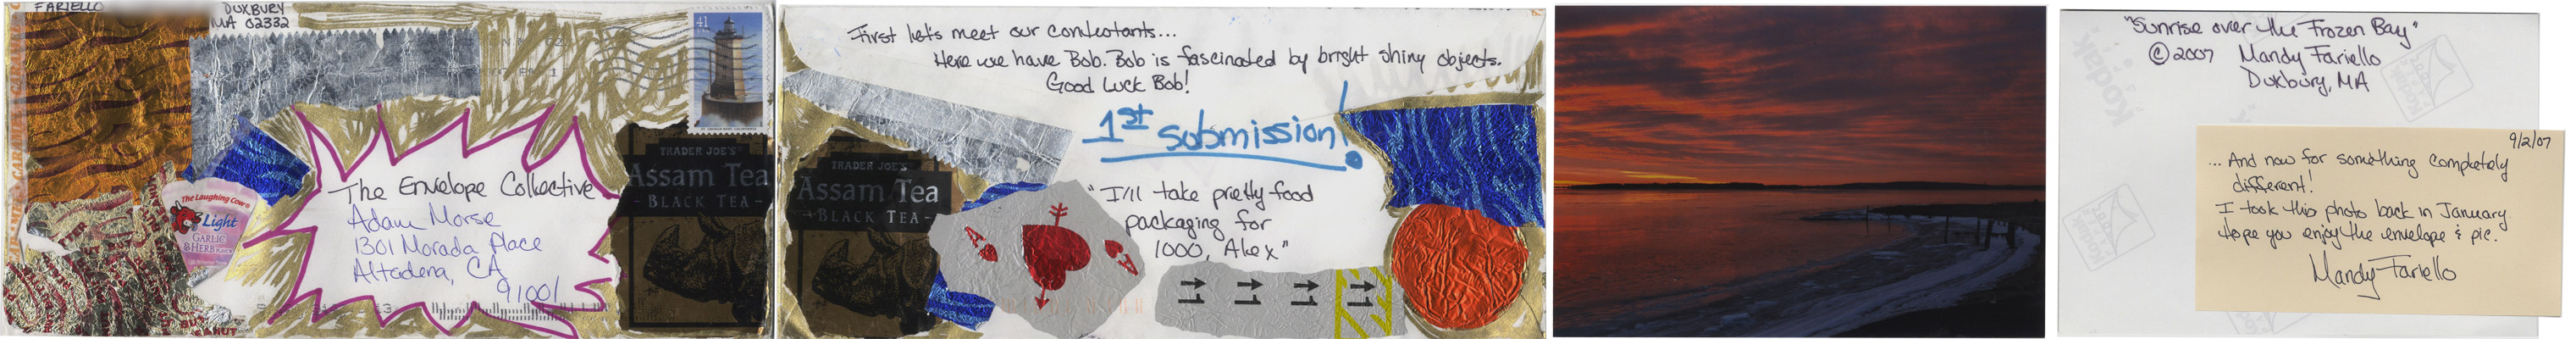 FARIELLO
DUXBURY
MA 02332
41
The Laughing Cow
Light
GARLIC
& HERB
The Envelope Collective
Adam Morse
1301 Morada Place
Altadena, CA
91001
TRADER JOE'S
Assam Tea
- BLACK TEA -
First let's meet our contestants...
Here we have Bob. Bob is fascinated by bright shiny objects.
Good Luck Bob!
1st submission!
TRADER JOE'S
Assam Tea
- BLACK TEA -
"I'll take pretty food
packaging for
1000, Alex"
A
A
1 1 1 1
"Sunrise over the Frozen Bay"
© 2007 Mandy Fariello
Duxbury, MA
Kodak
9/2/07
... And now for something completely
different!
I took this photo back in January.
Hope you enjoy the envelope & pic.
Mandy Fariello